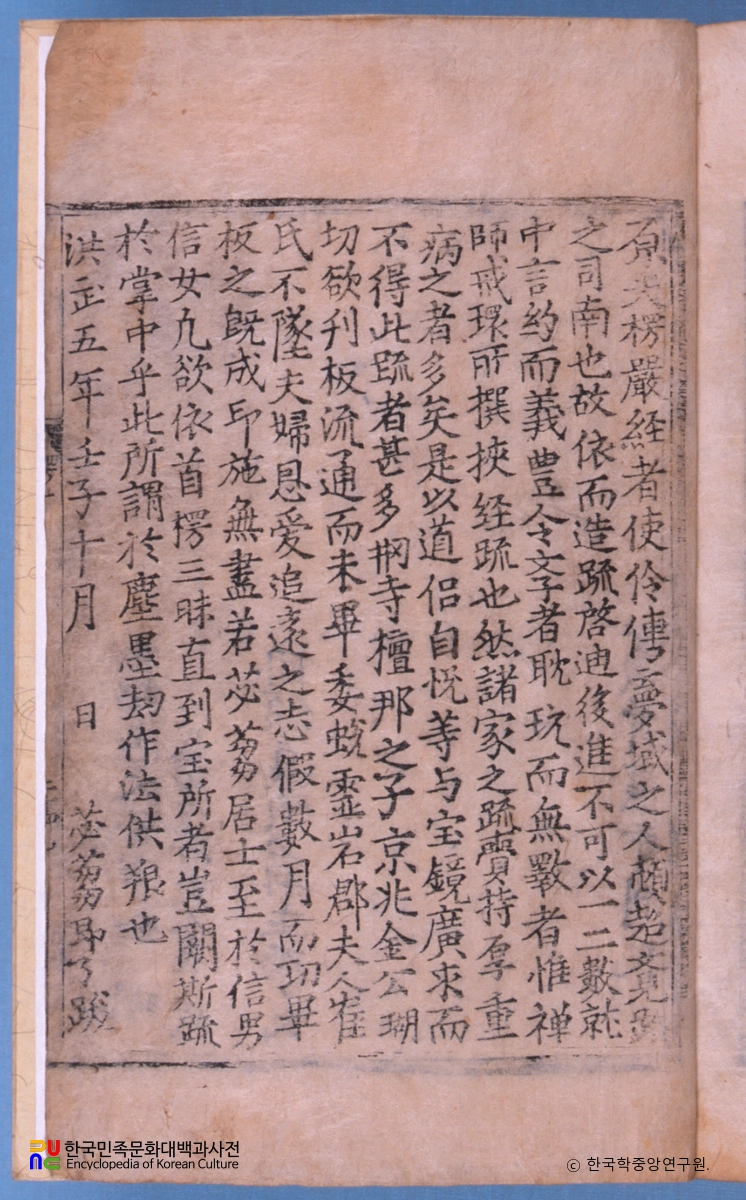 原夫楞嚴経者使伶俜憂域之人頓超
之司南也故依而造䟽啓迪後進不可以一二數就
中言約而義豊令文字者耽玩而無斁者惟禅
師戒環所撰挾経䟽也然諸家之䟽賷持厚重
病之者多矣是以道侣自恱等与宝鏡廣求而
不得此䟽者甚多桐寺檀那之子京兆金公瑚
切欲刋板流通而未畢委蛻霊岩郡夫人崔
氏不墜夫婦恩愛追遠之志假數月而功畢
板之既成印施無盡若苾蒭居士至於信男
信女凢欲依首楞三昧直到宝所者豈關斯䟽
於掌中乎此所謂於塵墨劫作法供粮也
洪武五年壬子十月 日 苾蒭即了跋
한국민족문화대백과사전
Encyclopedia of Korean Culture
© 한국학중앙연구원.